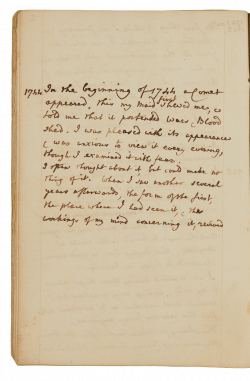 1744 In the beginning of 1744 a Comet
appeared, this my Maid first shewed me, &
told me that it portended Wars, Blood
Shed. I was pleased with its appearance
& was anxious to view it every evening,
though I examined it with fear.
I often thought about it but could make no
thing of it. When I saw another several
years afterwards, the form of the first,
the place where I had seen it, & the
workings of my mind concerning it, revived